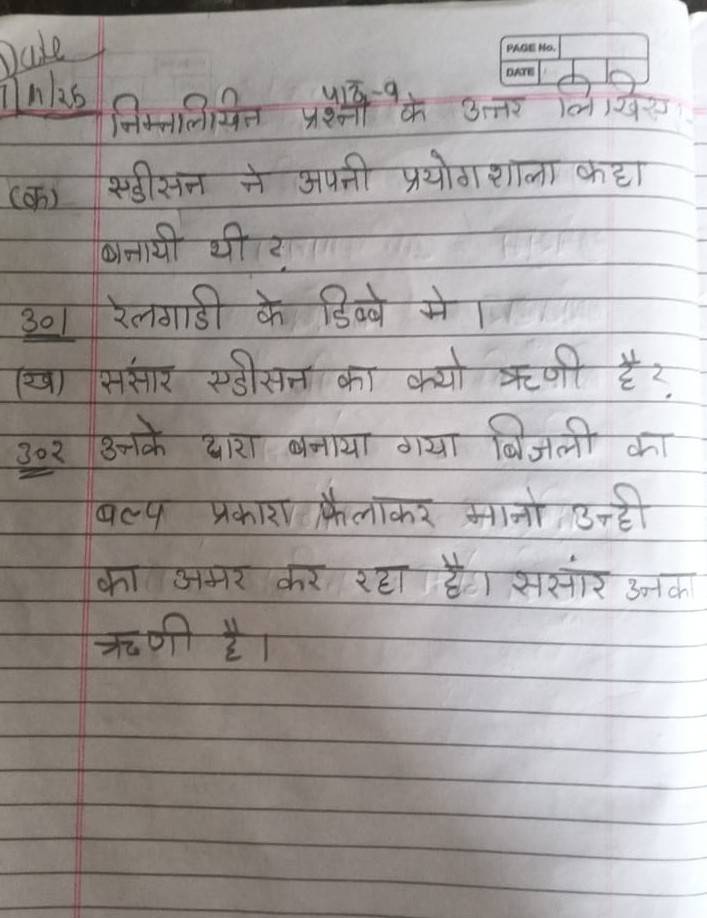 Date
PAGE No.
DATE
पाठ-9
निम्नलिखित प्रश्नों के उत्तर लिखिए
(क) एडीसन ने अपनी प्रयोगशाला कहा
बनायी थी ?
उ०1 रेलगाडी के डिब्बे मे ।
(ख) संसार एडीसन का क्यो ऋणी है ?
उ०२ उनके द्वारा बनाया गया बिजली का
बल्प प्रकाश फैलाकर मानो उन्ही
का अमर कर रहा है। ससांर उनका
ऋणी है ।